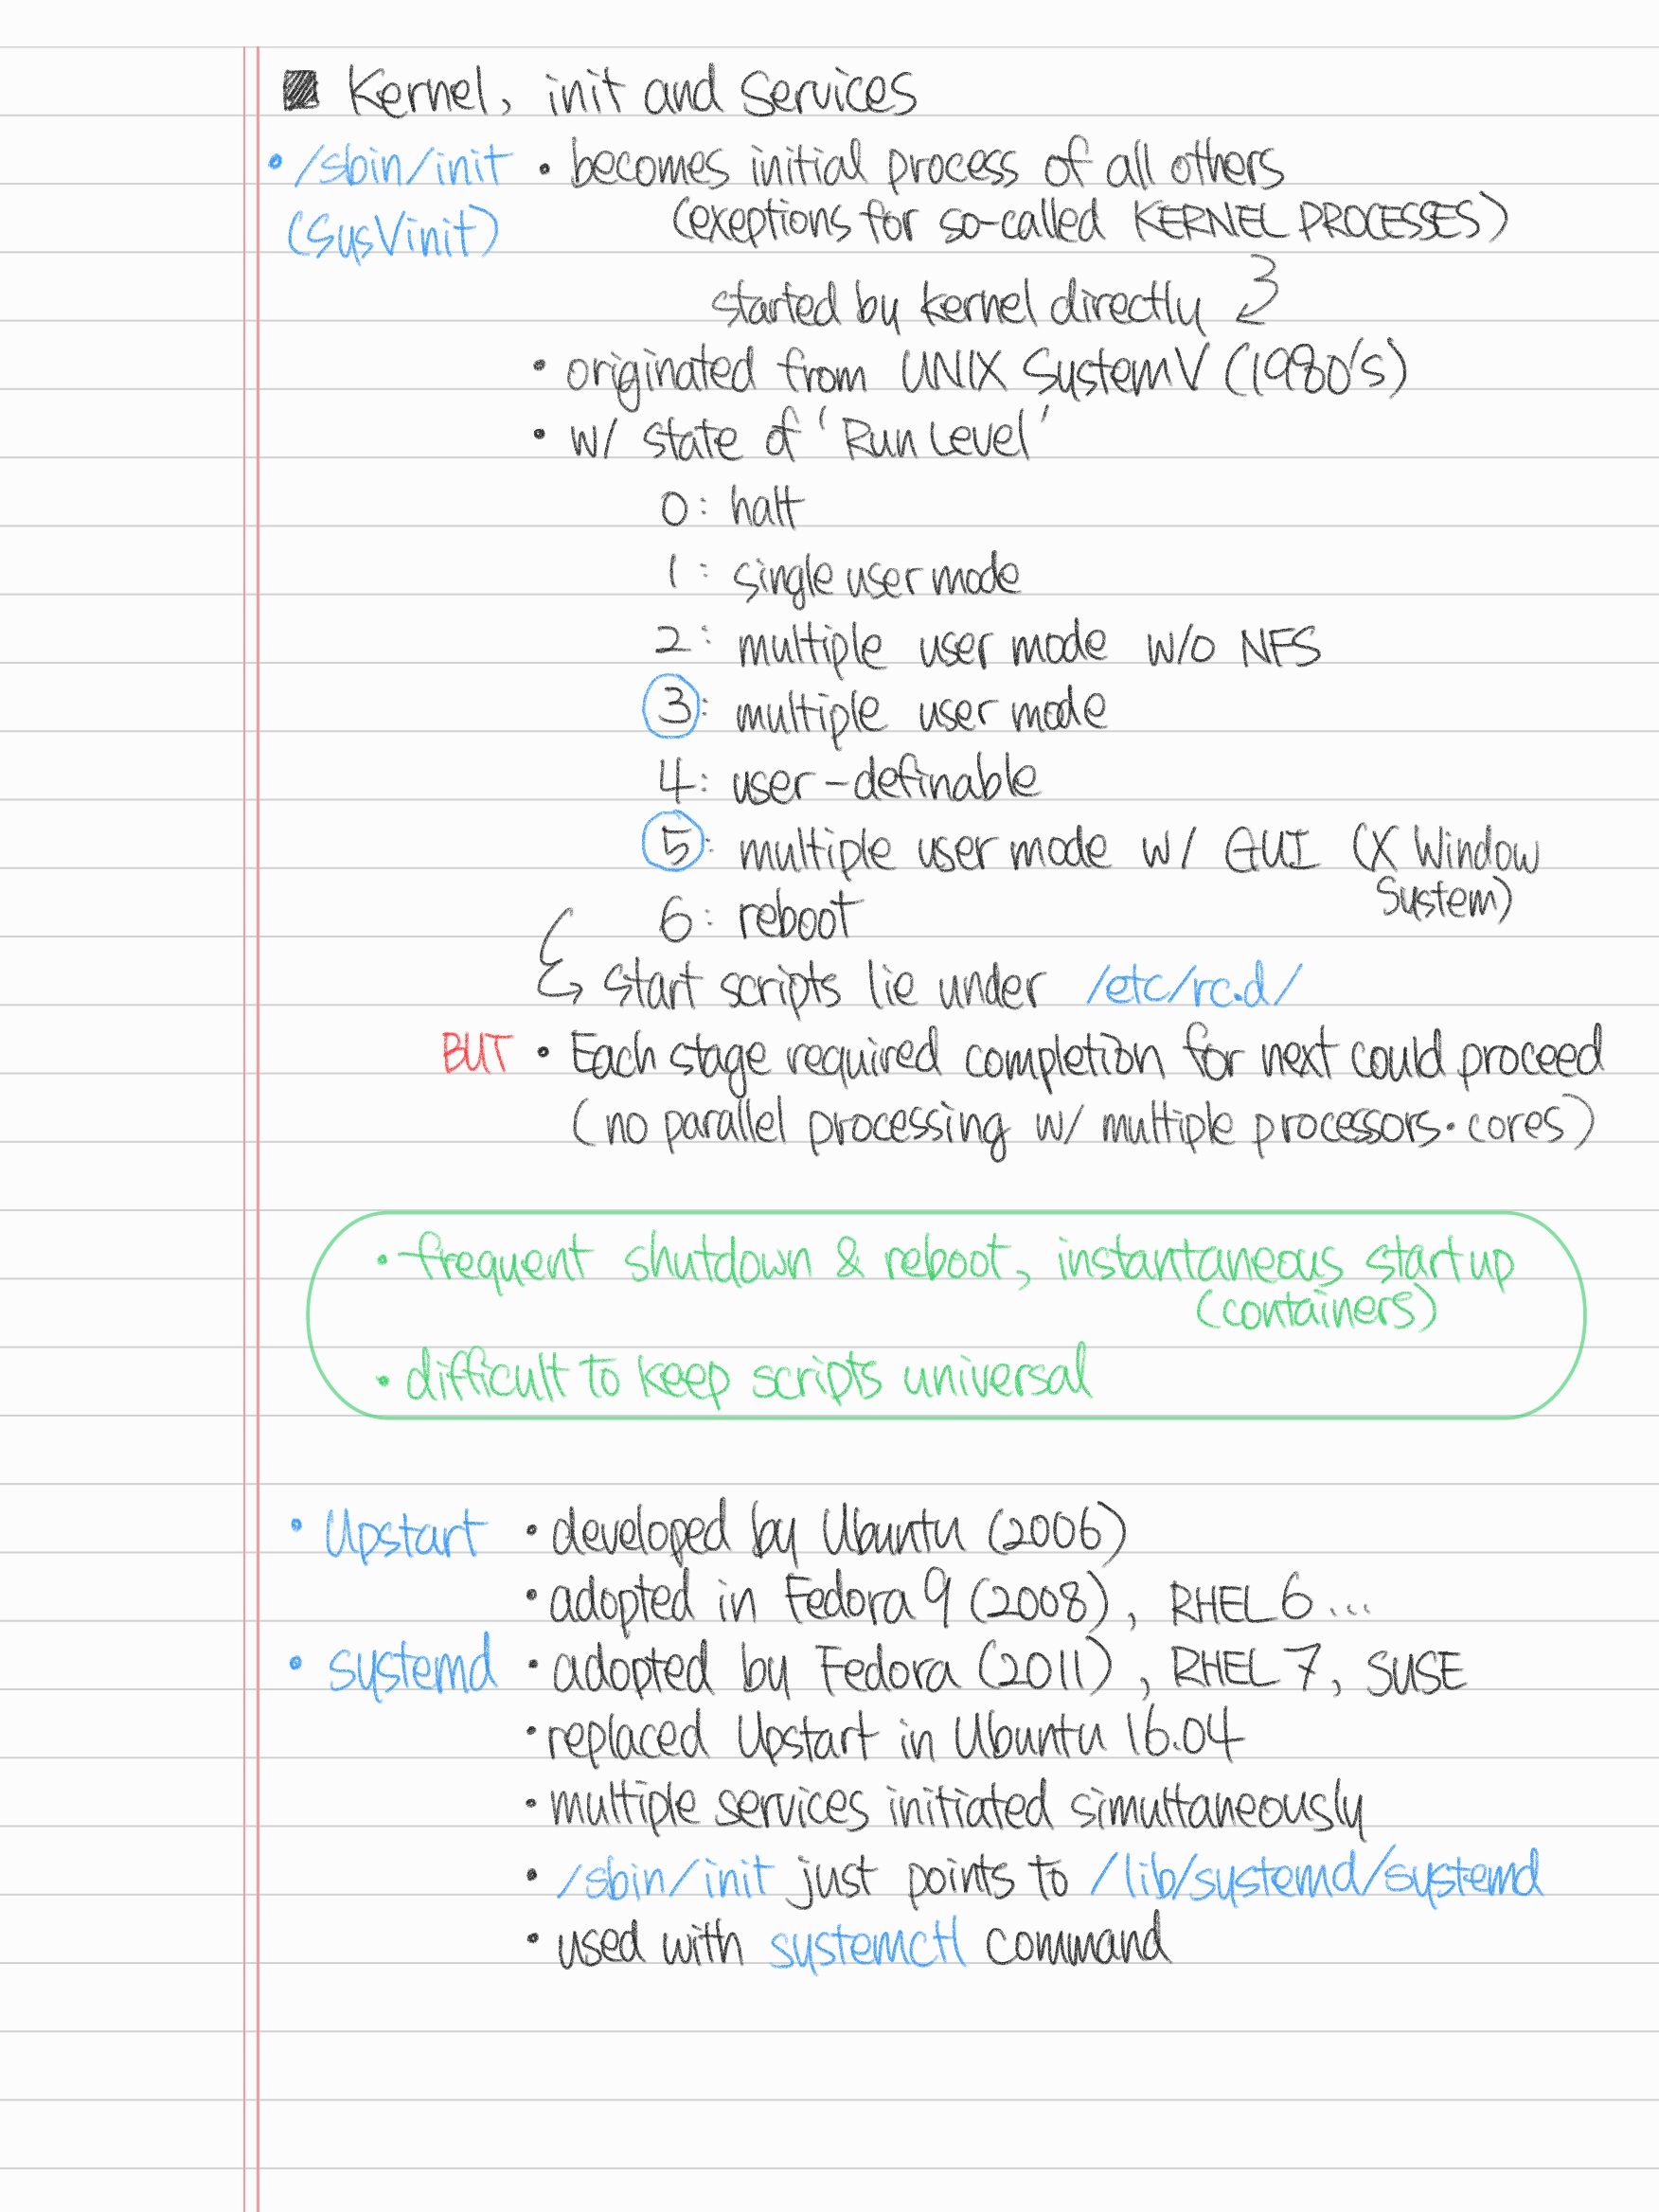 ■ Kernel, init and services
• /sbin/init • becomes initial process of all others
(SysVinit) (exeptions for so-called KERNEL PROCESSES)
started by kernel directly
• originated from UNIX SystemV (1980's)
• w/ state of 'Run Level'
0: halt
1: single user mode
2: multiple user mode w/o NFS
3: multiple user mode
4: user-definable
5: multiple user mode w/ GUI (X Window
System)
6: reboot
start scripts lie under /etc/rc.d/
BUT • Each stage required completion for next could proceed
(no parallel processing w/ multiple processors・cores)
• frequent shutdown & reboot, instantaneous startup
(containers)
• difficult to keep scripts universal
• Upstart • developed by Ubuntu (2006)
• adopted in Fedora 9 (2008), RHEL 6 ...
• systemd • adopted by Fedora (2011), RHEL 7, SUSE
• replaced Upstart in Ubuntu 16.04
• multiple services initiated simultaneously
• /sbin/init just points to /lib/systemd/systemd
• used with systemctl command